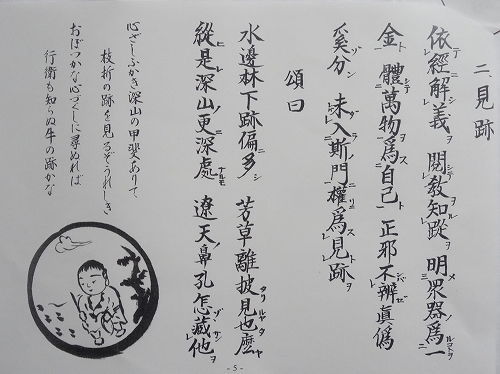 二 見跡
依經解義 閲教知蹤 明衆器爲一
金 體萬物爲自己 正邪不辨真僞
奚分 未入斯門 權爲見跡
頌曰
水邊林下跡偏多 芳草離披見也麼
縱是深山更深處 遼天鼻孔怎藏他
心ざしふかき深山の甲斐ありて
枝折の跡を見るぞうれしき
おぼつかな心づくしに尋ぬれば
行衛も知らぬ牛の跡かな
-5-